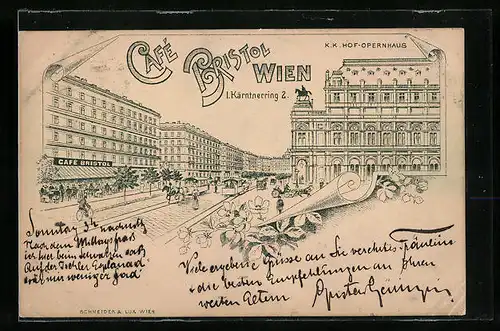 CAFÉ BRISTOL WIEN
I. Kärntnerring 2.
K.K. HOF-OPERNHAUS
CAFÉ BRISTOL
Sonntag
Nach dem
ist hier beim Schwarzen
Auf der Ischler Esplanad
wär mir weniger
Viele ergebene Grüsse an Sie verehrtes Fräulein
& die besten Empfehlungen an Ihren
werten Eltern
SCHNEIDER & LUX WIEN